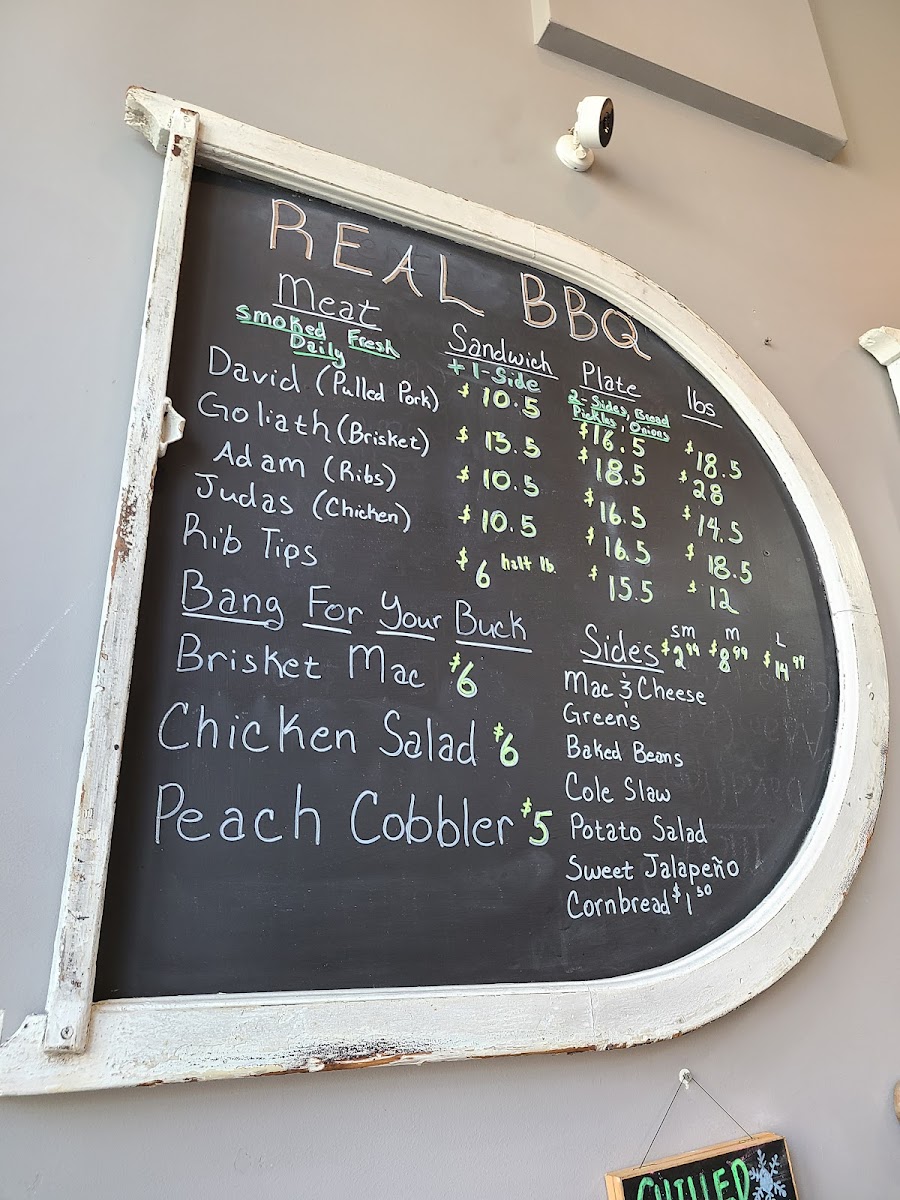 REAL BBQ
Meat
Smoked Fresh
Daily
Sandwich
+ 1-Side
Plate
2-Sides, Bread
Pickles, Onions
lbs
David (Pulled Pork) $10.5 $16.5 $18.5
Goliath (Brisket) $13.5 $18.5 $28
Adam (Ribs) $10.5 $16.5 $14.5
Judas (Chicken) $10.5 $16.5 $18.5
Rib Tips $6 half lb. $15.5 $12
Bang For Your Buck
Brisket Mac $6
Chicken Salad $6
Peach Cobbler $5
Sides sm $2.99 m $8.99 L $14.99
Mac & Cheese
Greens
Baked Beans
Cole Slaw
Potato Salad
Sweet Jalapeño
Cornbread $1.50
CHILLED